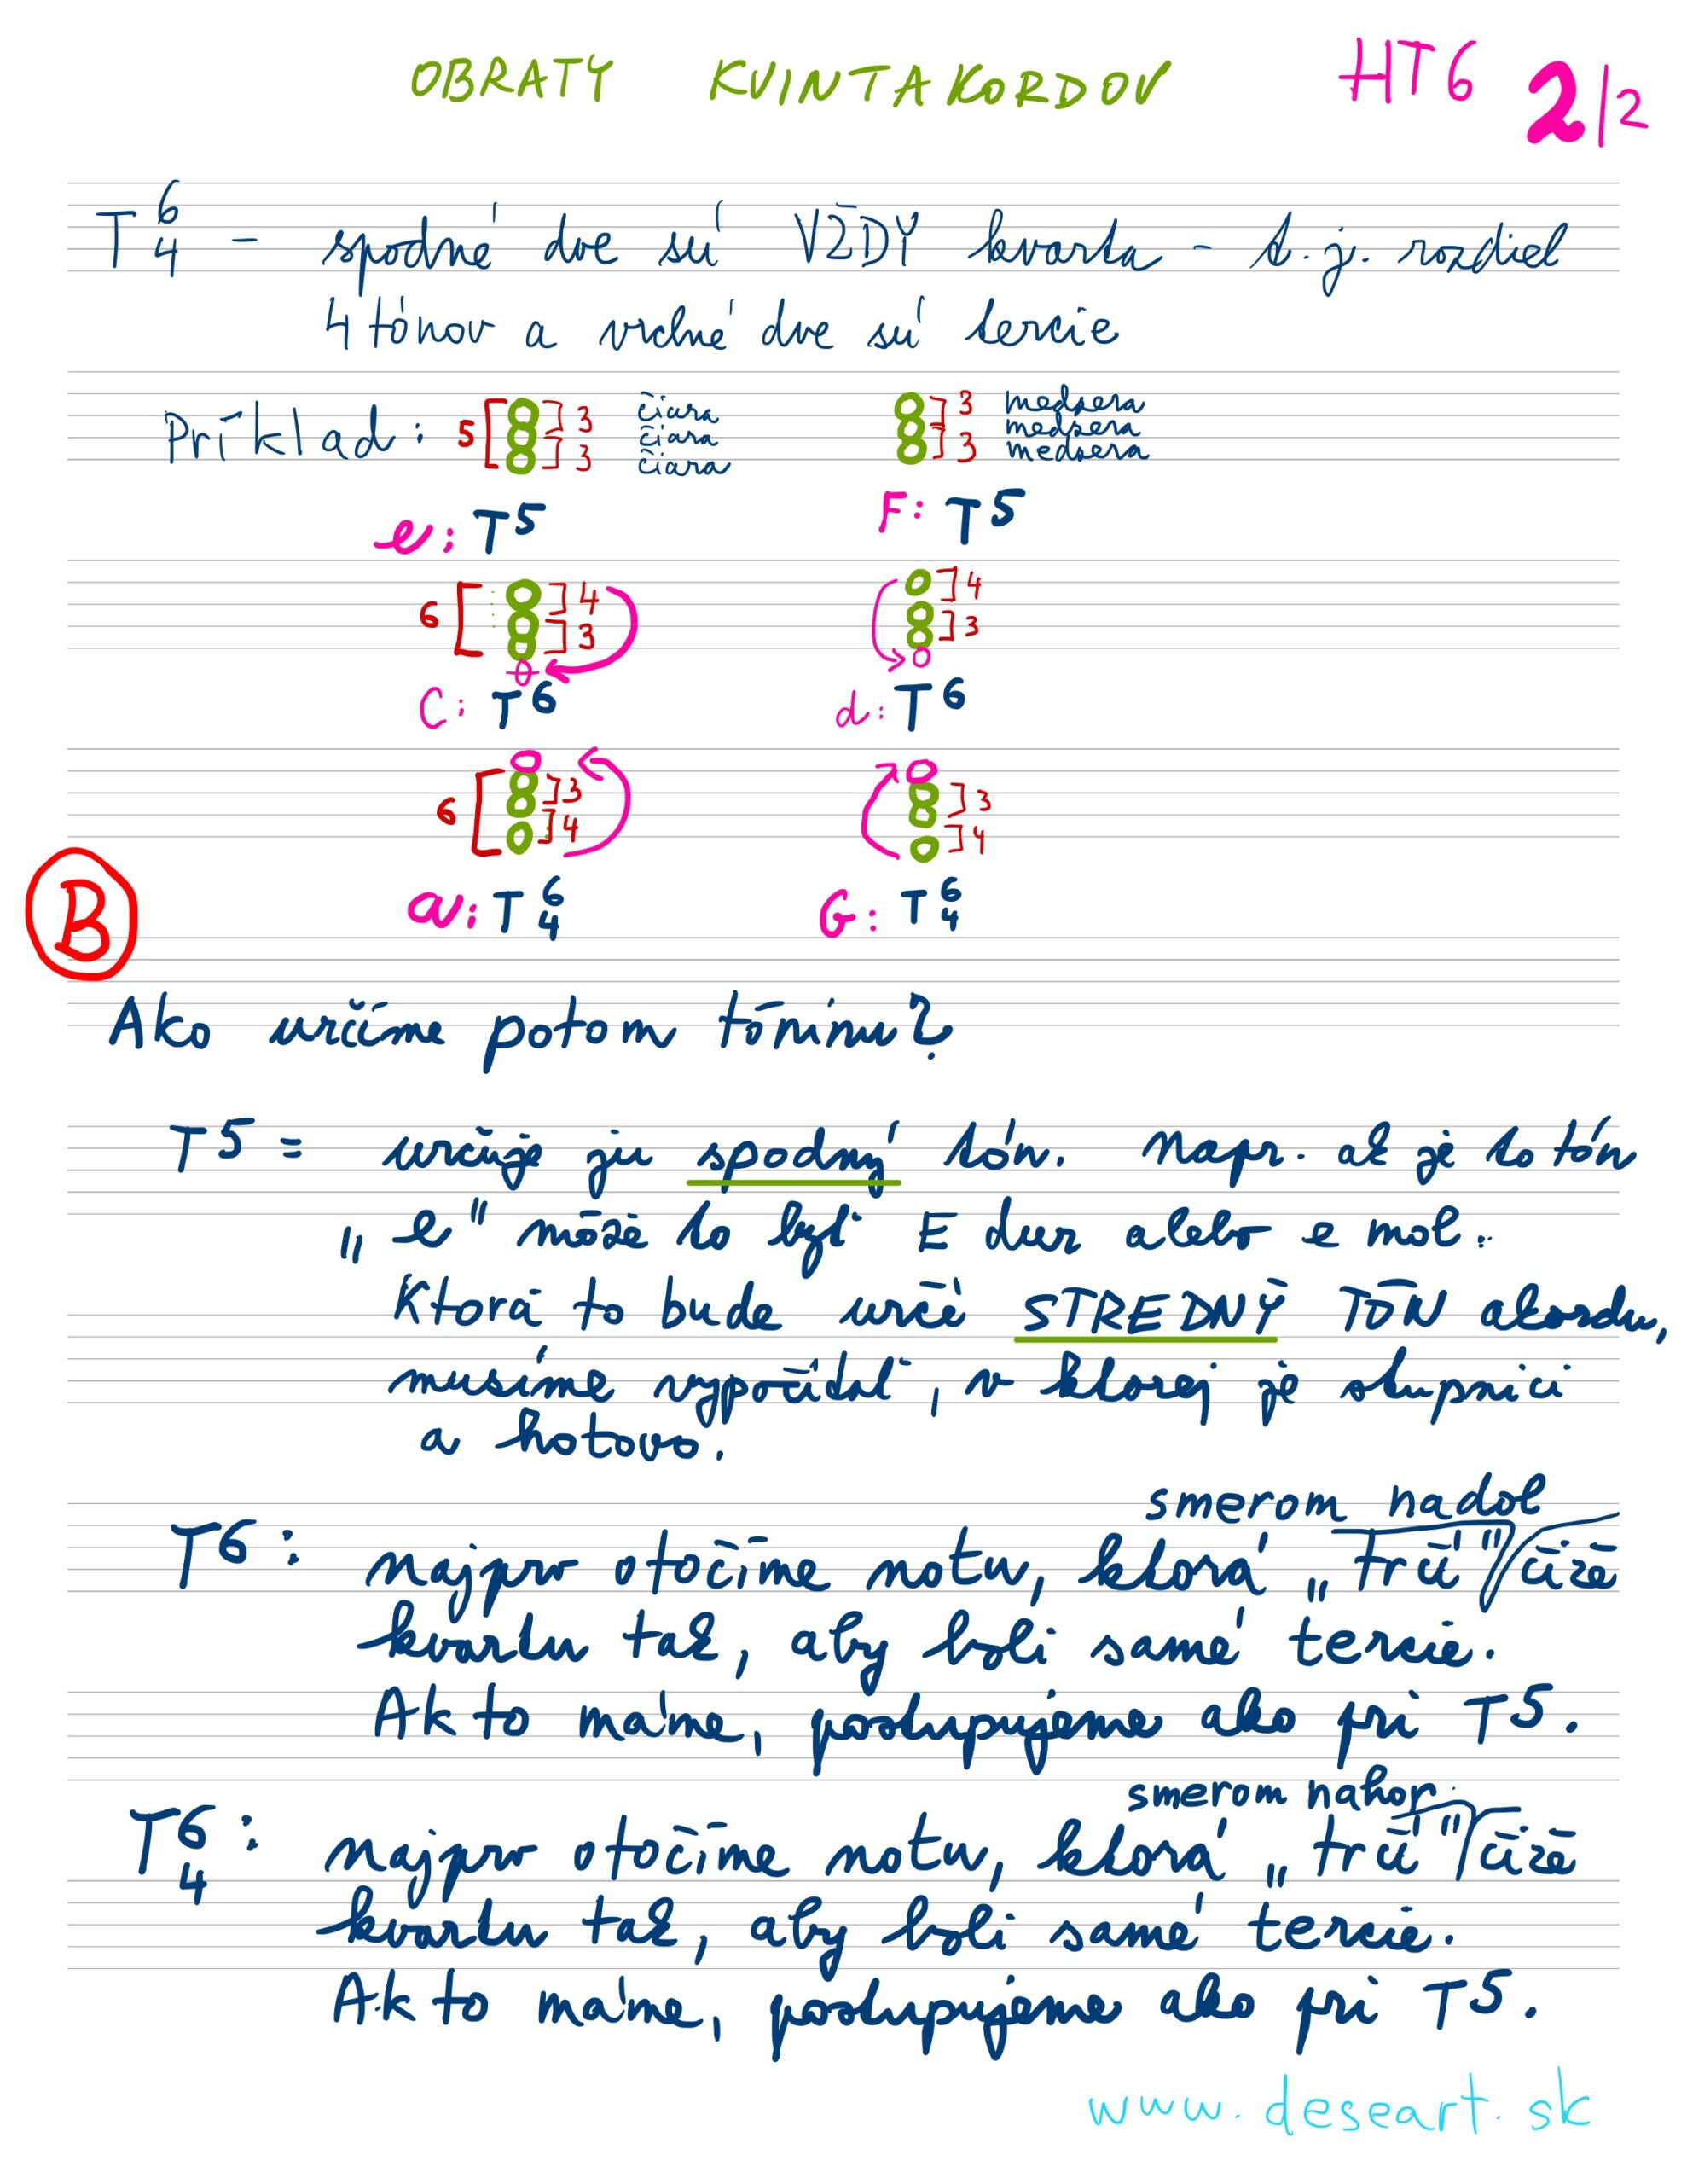 OBRATY KVINTAKORDOV HT6 2/2
T 6 4 - spodné dve sú VŽDY kvarta - t.j. rozdiel
4 tónov a vrchné dve sú tercie
Príklad: 5 3 3 čiara čiara čiara 3 3 medzera medzera medzera
e: T5 F: T5
6 4 3 4 3
C: T6 d: T6
6 3 4 3 4
a: T 6 4 G: T 6 4
B
Ako určíme potom tóninu?
T5 = určuje ju spodný tón. Napr. ak je to tón
„e" môže to byť E dur alebo e mol.
Ktorá to bude určí STREDNÝ TÓN akordu,
musíme vypočítať, v ktorej je stupnici
a hotovo.
smerom nadol
T6: najprv otočíme notu, ktorá „trčí" čiže
kvartu tak, aby boli samé tercie.
Ak to máme, postupujeme ako pri T5.
smerom nahor
T 6 4: najprv otočíme notu, ktorá „trčí" čiže
kvartu tak, aby boli samé tercie.
Ak to máme, postupujeme ako pri T5.
www.deseart.sk